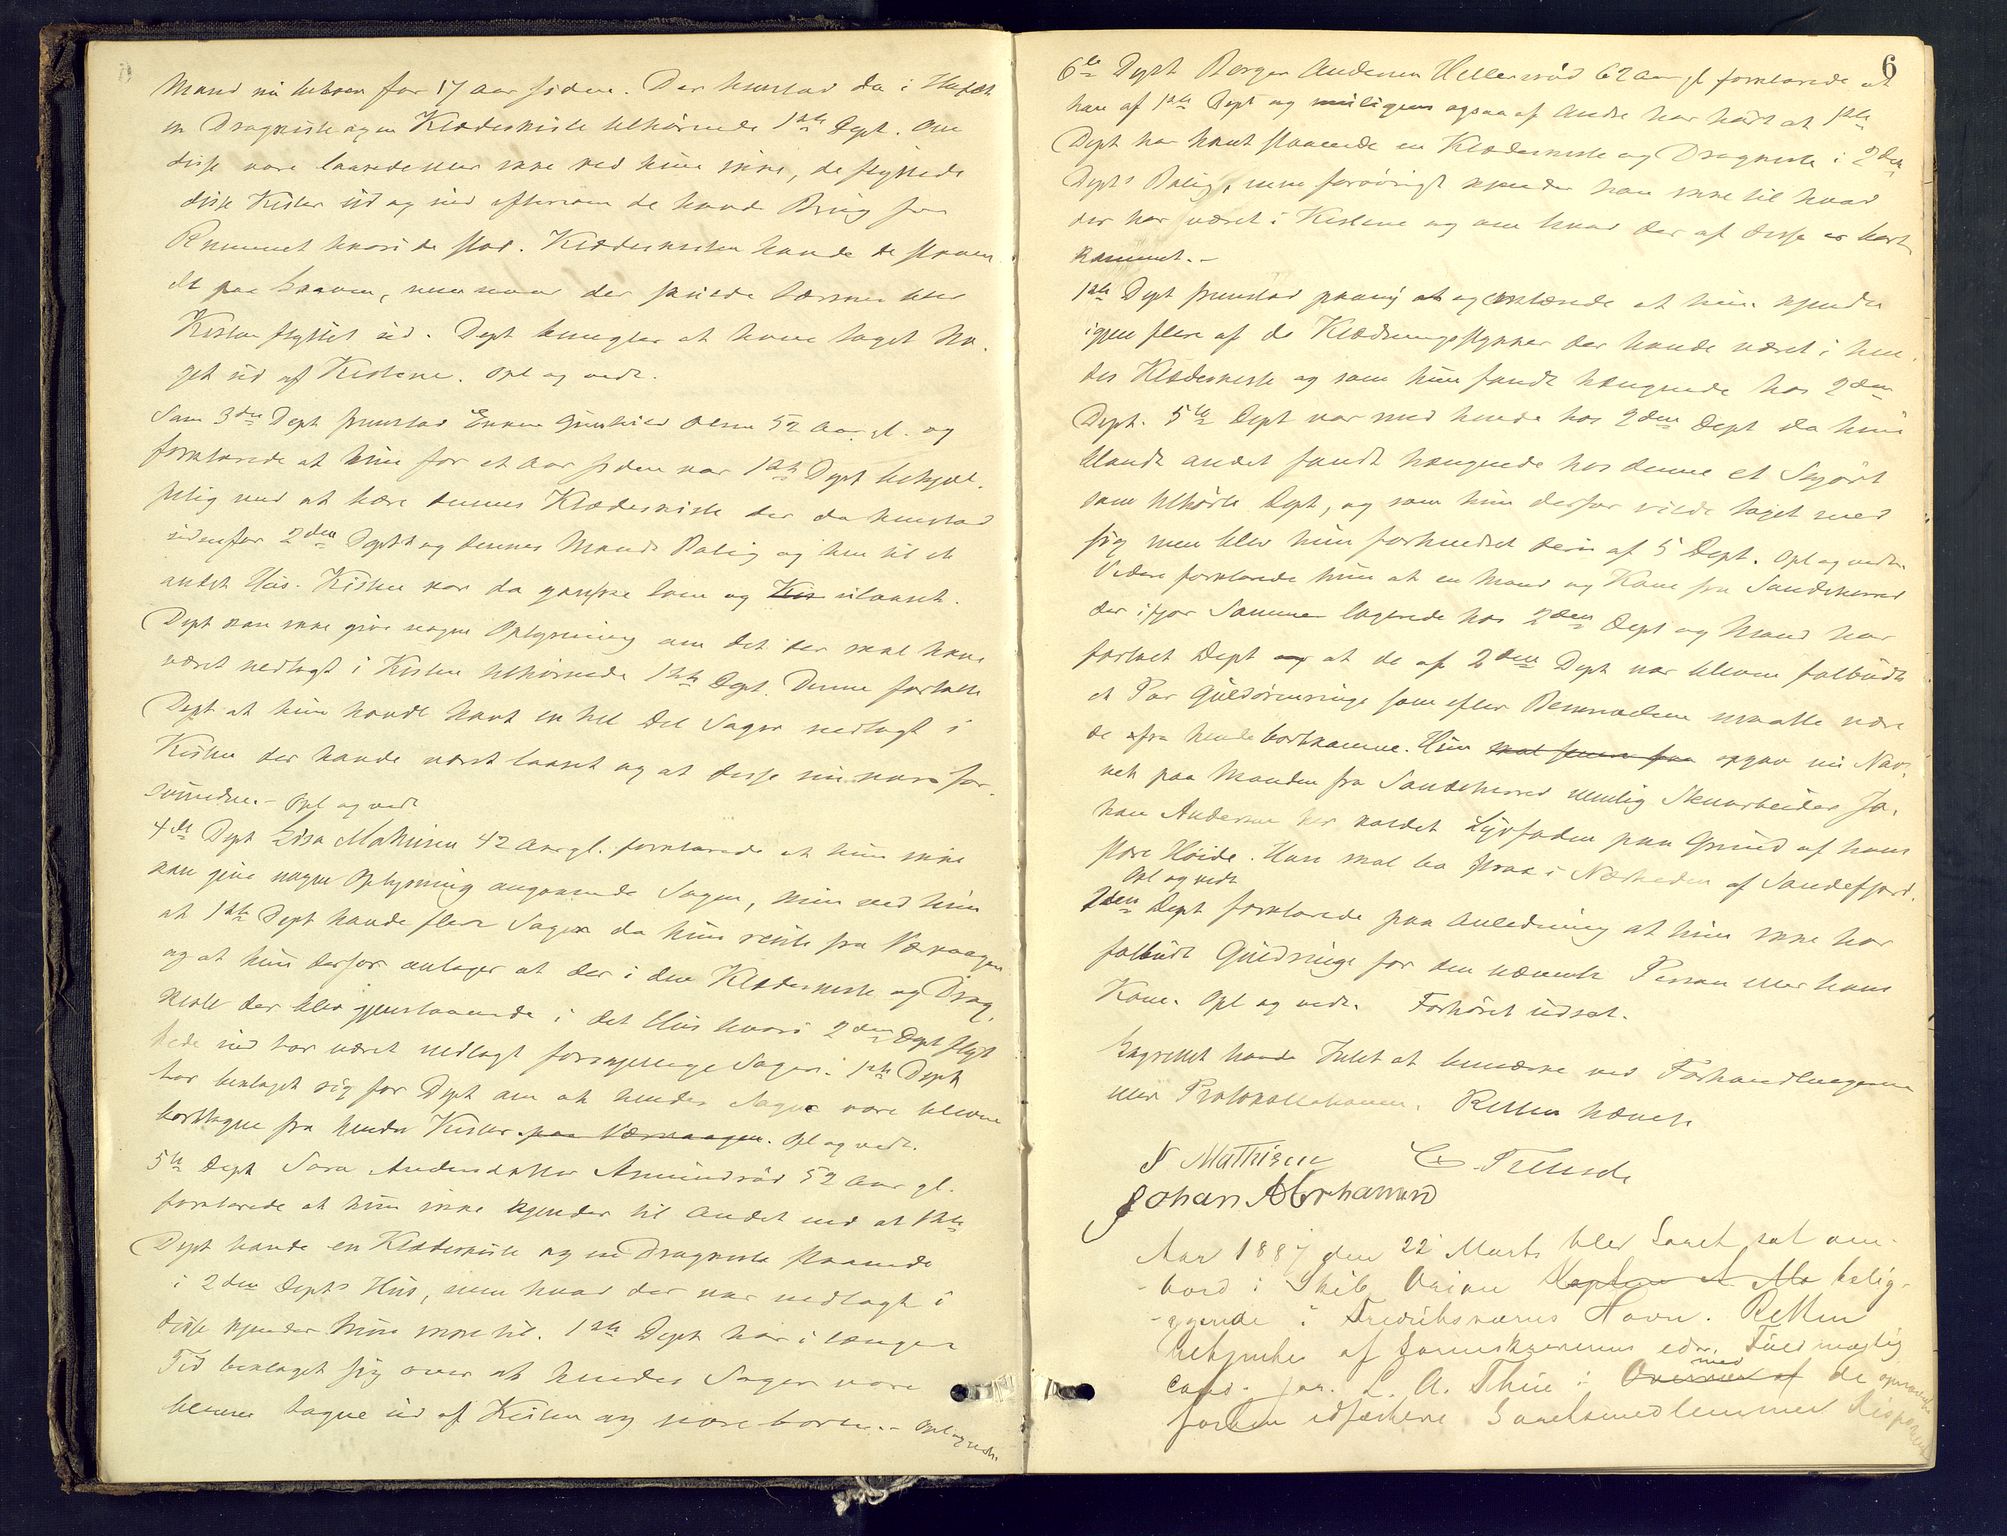 Mand nu bleven for 17 Aar siden. Der henstod da i Huset
en Dragkiste og en Klædeskiste tilhørende 1ste Dept. Om
disse vare laasede eller ikke ved hun ikke, de flyttede
disse Kister ud og ind eftersom de havde Brug for
Rummet hvori de stod. Klædeskisten havde de staaen
de paa Loven, men naar der skulde tærskes blev
Kisten flyttet ud. Dept benegter at have taget No-
get ud af Kistene. Opl og vedt.
Som 3die Dept fremstod Enken Gunhild Olsen 52 Aar gl. og
forklarede at hun for et Aar siden var 1ste Dept behjæl-
pelig med at bære dennes Klædeskiste der da henstod
udenfor 2den Depts og dennes Mands Bolig og hen til et
andet Hus. Kisten var da ganske tom og Kis ulaaset.
Dept kan ikke give nogen Oplysning om det der skal have
været nedlagt i Kisten tilhørende 1ste Dept. Denne fortalte
Dept at hun havde havt en hel Del Sager nedlagt i
Kisten der havde været laaset og at disse nu vare for-
svundne. - Opl og vedt
4de Dept Lisa Mathisen 42 Aar gl. forklarede at hun ikke
kan give nogen Oplysning angaaende Sagen, hun ved kun
at 1ste Dept havde flere Sager da hun reiste fra Værvaagen
og at hun derfor antager at der i den Klædeskiste og Drag-
kiste der blev gjenstaaende i det Hus hvori 2den Dept flyt
tede ind har været nedlagt forskjellige Sager. 1ste Dept
har beklaget sig for Dept om at hendes Sager vare blevne
borttagne fra hendes Kister paa Værvaagen. Opl og vedt.
5te Dept Sara Andersdatter Amundrød 52 Aar gl.
forklarede at hun ikke kjender til Andet end at 1ste
Dept havde en Klædeskiste og en Dragkiste staaende
i 2den Depts Hus, men hvad der var nedlagt i
disse kjender hun ikke til. 1ste Dept har i længere
Tid beklaget sig over at hendes Sager vare
blevne tagne ud af Kisten og vare borte. - Opl og vedt.
6
6te Dept Borger Andersen Hellerød 62 Aar gl forklarede at
han af 1ste Dept og muligens ogsaa af Andre har hørt at 1ste
Dept har havt staaende en Klædeskiste og Dragkiste i 2den
Depts Bolig, men forøvrigt kjender han ikke til hvad
der har været i Kistene og om hvad der af disse er bort
kommet. -
1ste Dept fremstod paany og erklærede at hun kjendte
igjen flere af de Klædningsstykker der havde været i hen-
des Klædeskiste og som hun fandt hængende hos 2den
Dept. 5te Dept var med hende hos 2den Dept da hun
blandt andet fandt hængende hos denne et Skjørt
som tilhørte Dept, og som hun derfor vilde taget med
sig men blev hun forhindret deri af 5 Dept. Opl og vedt.
Videre forklarede hun at en Mand og Kone fra Sandeherred
der ifjor Sommer logerede hos 2den Dept og Mand har
fortalt Dept at de af 2den Dept var bleven falbudt
et Par Guldørenringe som efter Beskrivelsen maatte være
de fra hende bortkomne. Hun skal senere faa opgav nu Nav-
net paa Manden fra Sandeherred nemlig Stenarbeider Jo-
han Andersen her kaldet Lysfoden paa Grund af hans
store Høide. Han skal bo strax i Nærheden af Sandefjord.
Opl og vedt
2den Dept forklarede paa Anledning at hun ikke har
falbudt Guldringe for den nævnte Person eller hans
Kone. Opl og vedt. Forhøret udsat.
Lagrettet havde Intet at bemærke ved Forhandlingerne
eller Protokollationen. Retten hævet.
N Mathisen
Johan Abrahamsen
Aar 1887 den 22 Marts blev Søret sat om-
-bord i Skib Orion Kaptein A Mo belig-
-ggende i Fredriksværns Havn. Retten
betjentes af Sorenskriverens edsv. Fuldmægtig
cand. jur. L. A. Thue i Overvær af med de opnævnte
forhen edfæstede Søretsmedlemmer